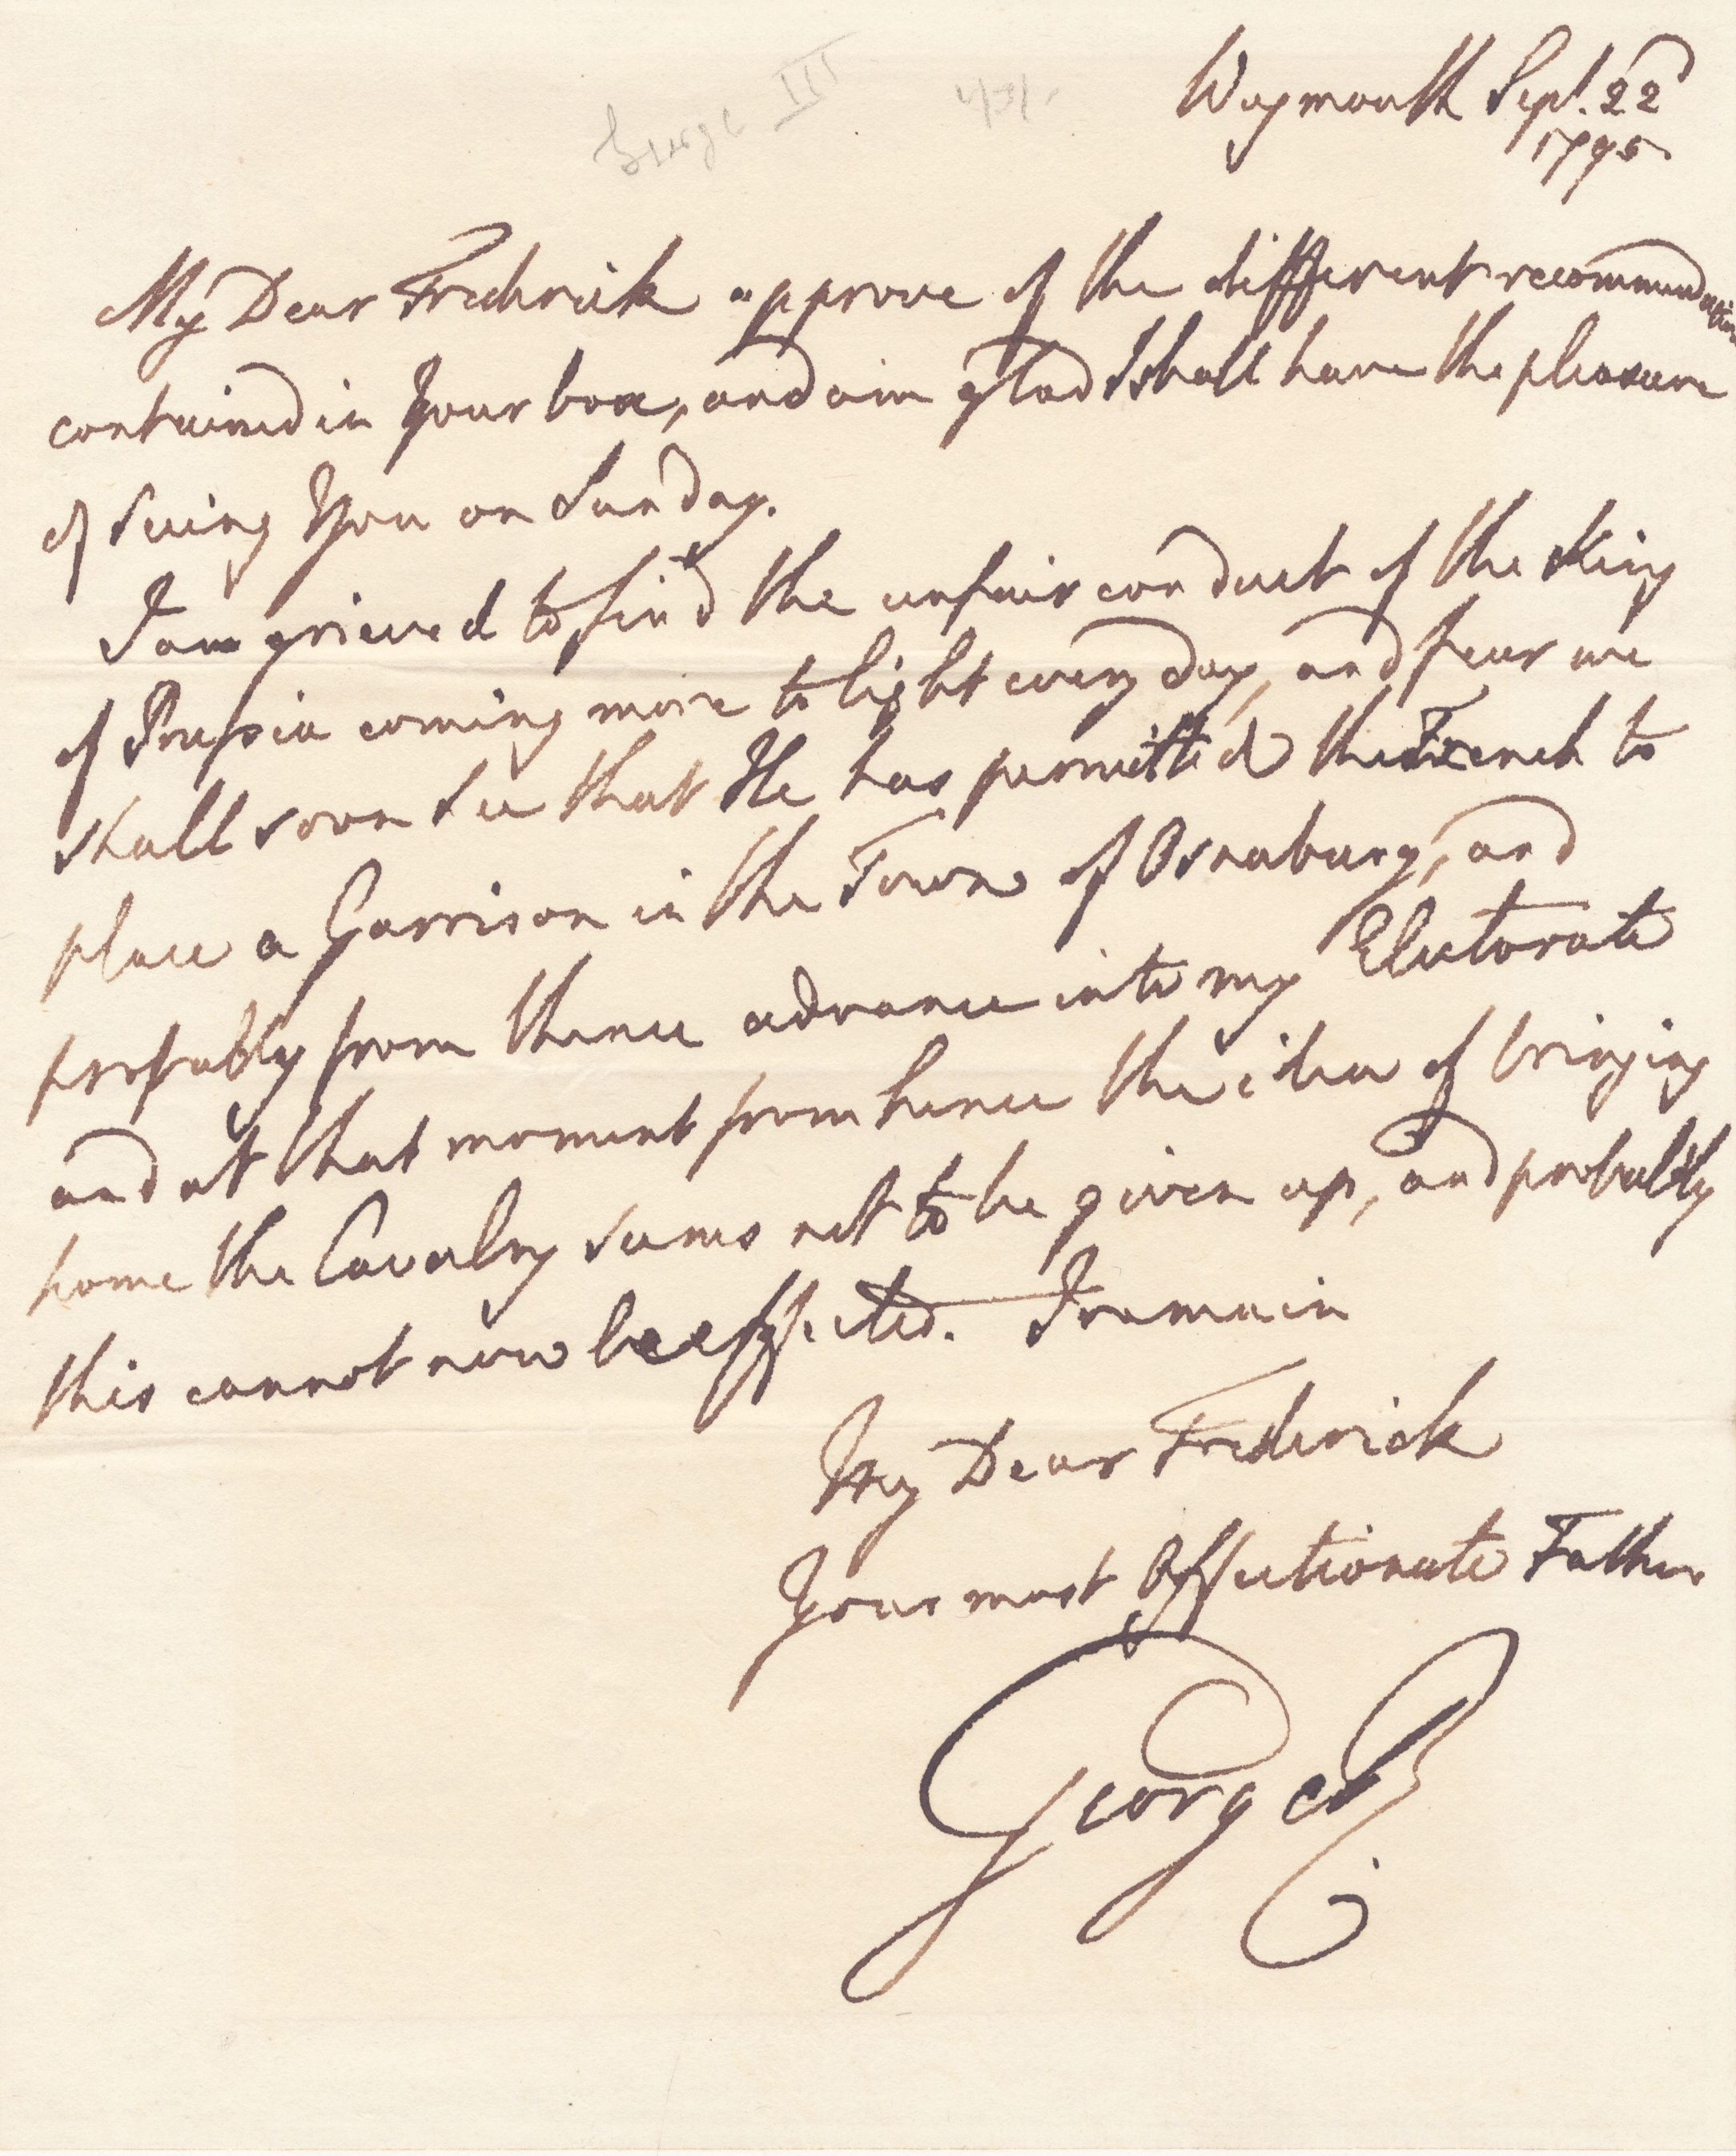 George III
Weymouth Sept. 22d
1795
My Dear Frederick approve of the different recommendations
contained in Your box, and am glad I shall have the pleasure
of seeing You on Sunday.
I am grieved to find the unfair conduct of the King
of Prussia coming more to light every day, and fear we
shall soon see that He has permitted the French to
place a Garrison in the Town of Osnaburg, and
probably from thence advance into my Electorate
and at that moment from hence the idea of bringing
home the Cavalry seems not to be given up, and probably
this cannot now be effected. I remain
My Dear Frederick
Your most Affectionate Father
George R